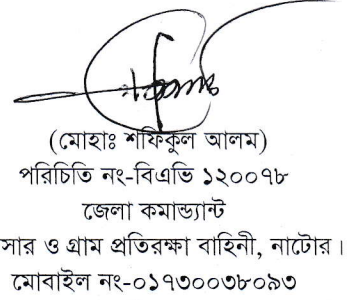 (মোহাঃ শফিকুল আলম)
পরিচিতি নং-বিএভি ১২০০৭৮
জেলা কমান্ড্যান্ট
সার ও গ্রাম প্রতিরক্ষা বাহিনী, নাটোর।
মোবাইল নং-০১৭৩০০৩৮০৯৩